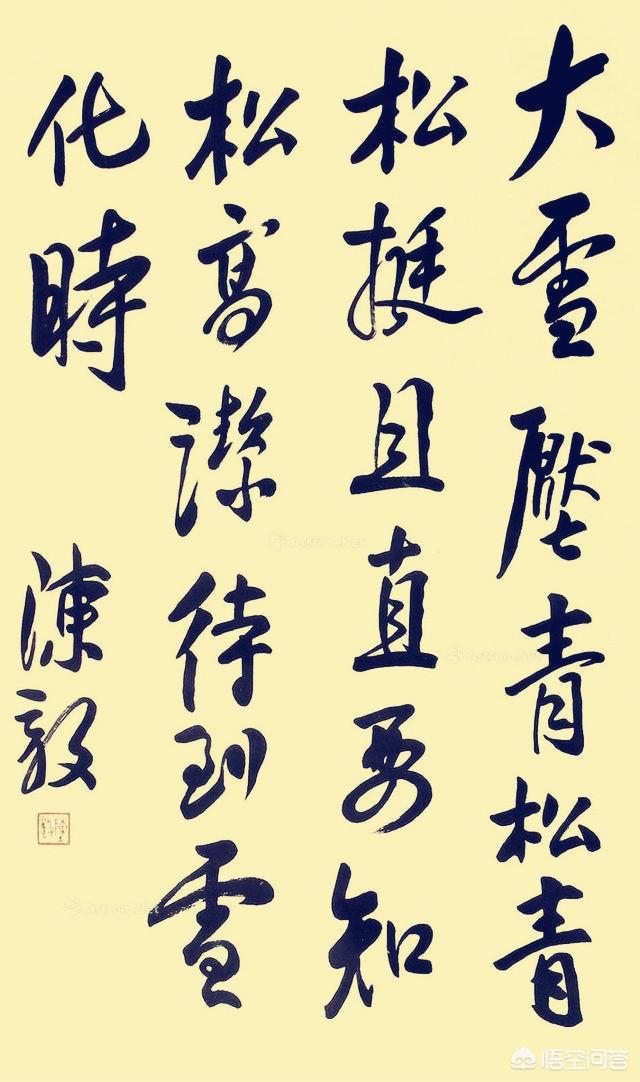 大雪壓青松青
松挺且直要知
松高潔待到雪
化時
陳毅
Artron.Net
Artron.Net
Artron.Net
悟空问答